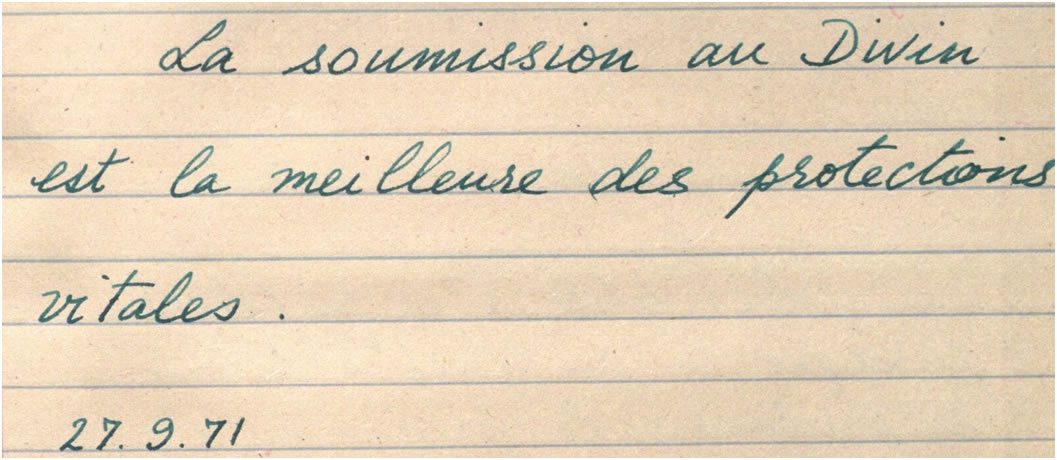 La soumission au Divin
est la meilleure des protections
vitales.
27.9.71